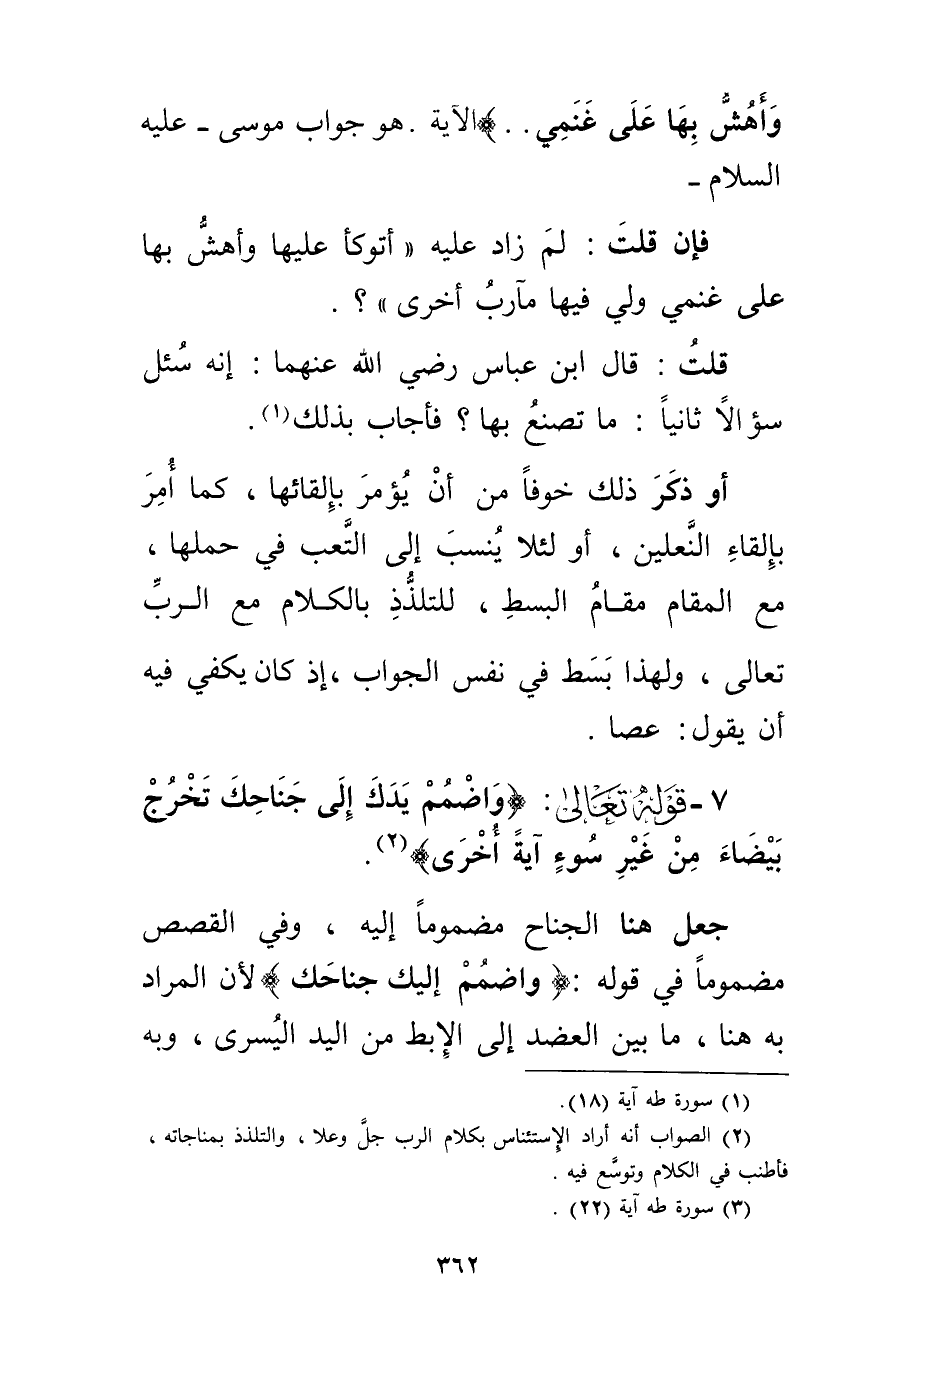 وَأَهُشُّ بِهَا عَلَى غَنَمِي. . .﴾الآية .هو جواب موسى ـ عليه
السلام ـ
فإن قلتَ : لمَ زاد عليه « أتوكأ عليها وأهشُّ بها
على غنمي ولي فيها مآربُ أخرى » ؟ .
قلتُ : قال ابن عباس رضي الله عنهما : إنه سُئل
سؤالًا ثانياً : ما تصنعُ بها ؟ فأجاب بذلك(١).
أو ذكَرَ ذلك خوفاً من أنْ يُؤمرَ بإلقائها ، كما أُمِرَ
بإلقاءِ النَّعلين ، أو لئلا يُنسبَ إلى التَّعب في حملها ،
مع المقام مقـامُ البسطِ ، للتلذُّذِ بالكـلام مع الـربِّ
تعالى ، ولهذا بَسَط في نفس الجواب ،إذ كان يكفي فيه
أن يقول: عصا .
٧ ـ قَوْلُهُ تَعَالَى: ﴿وَاضْمُمْ يَدَكَ إِلَى جَنَاحِكَ تَخْرُجْ
بَيْضَاءَ مِنْ غَيْرِ سُوءٍ آيةً أُخْرَى﴾(٢).
جعل هنا الجناح مضموماً إليه ، وفي القصص
مضموماً في قوله :﴿ واضمُمْ إليك جناحَك ﴾لأن المراد
به هنا ، ما بين العضد إلى الإبط من اليد اليُسرى ، وبه
(١) سورة طه آية (١٨).
(٢) الصواب أنه أراد الإستئناس بكلام الرب جلَّ وعلا ، والتلذذ بمناجاته ،
فأطنب في الكلام وتوسَّع فيه .
(٣) سورة طه آية (٢٢) .
٣٦٢